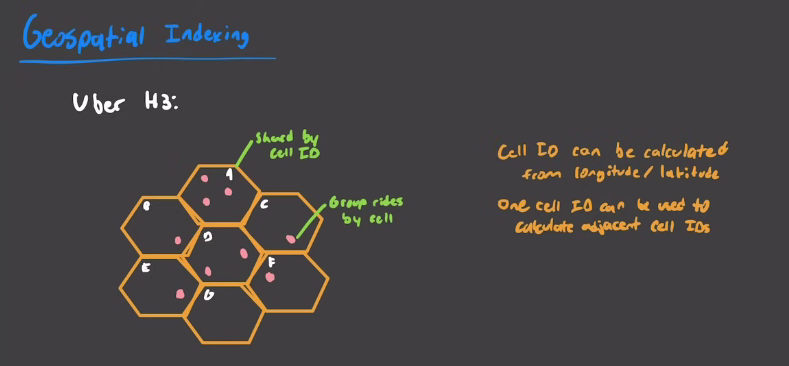 Geospatial Indexing
Uber H3:
Shard by
cell ID
A
Group rides
by cell
B
C
D
E
F
G
Cell ID can be calculated
from longitude/latitude
One cell ID can be used to
calculate adjacent cell IDs